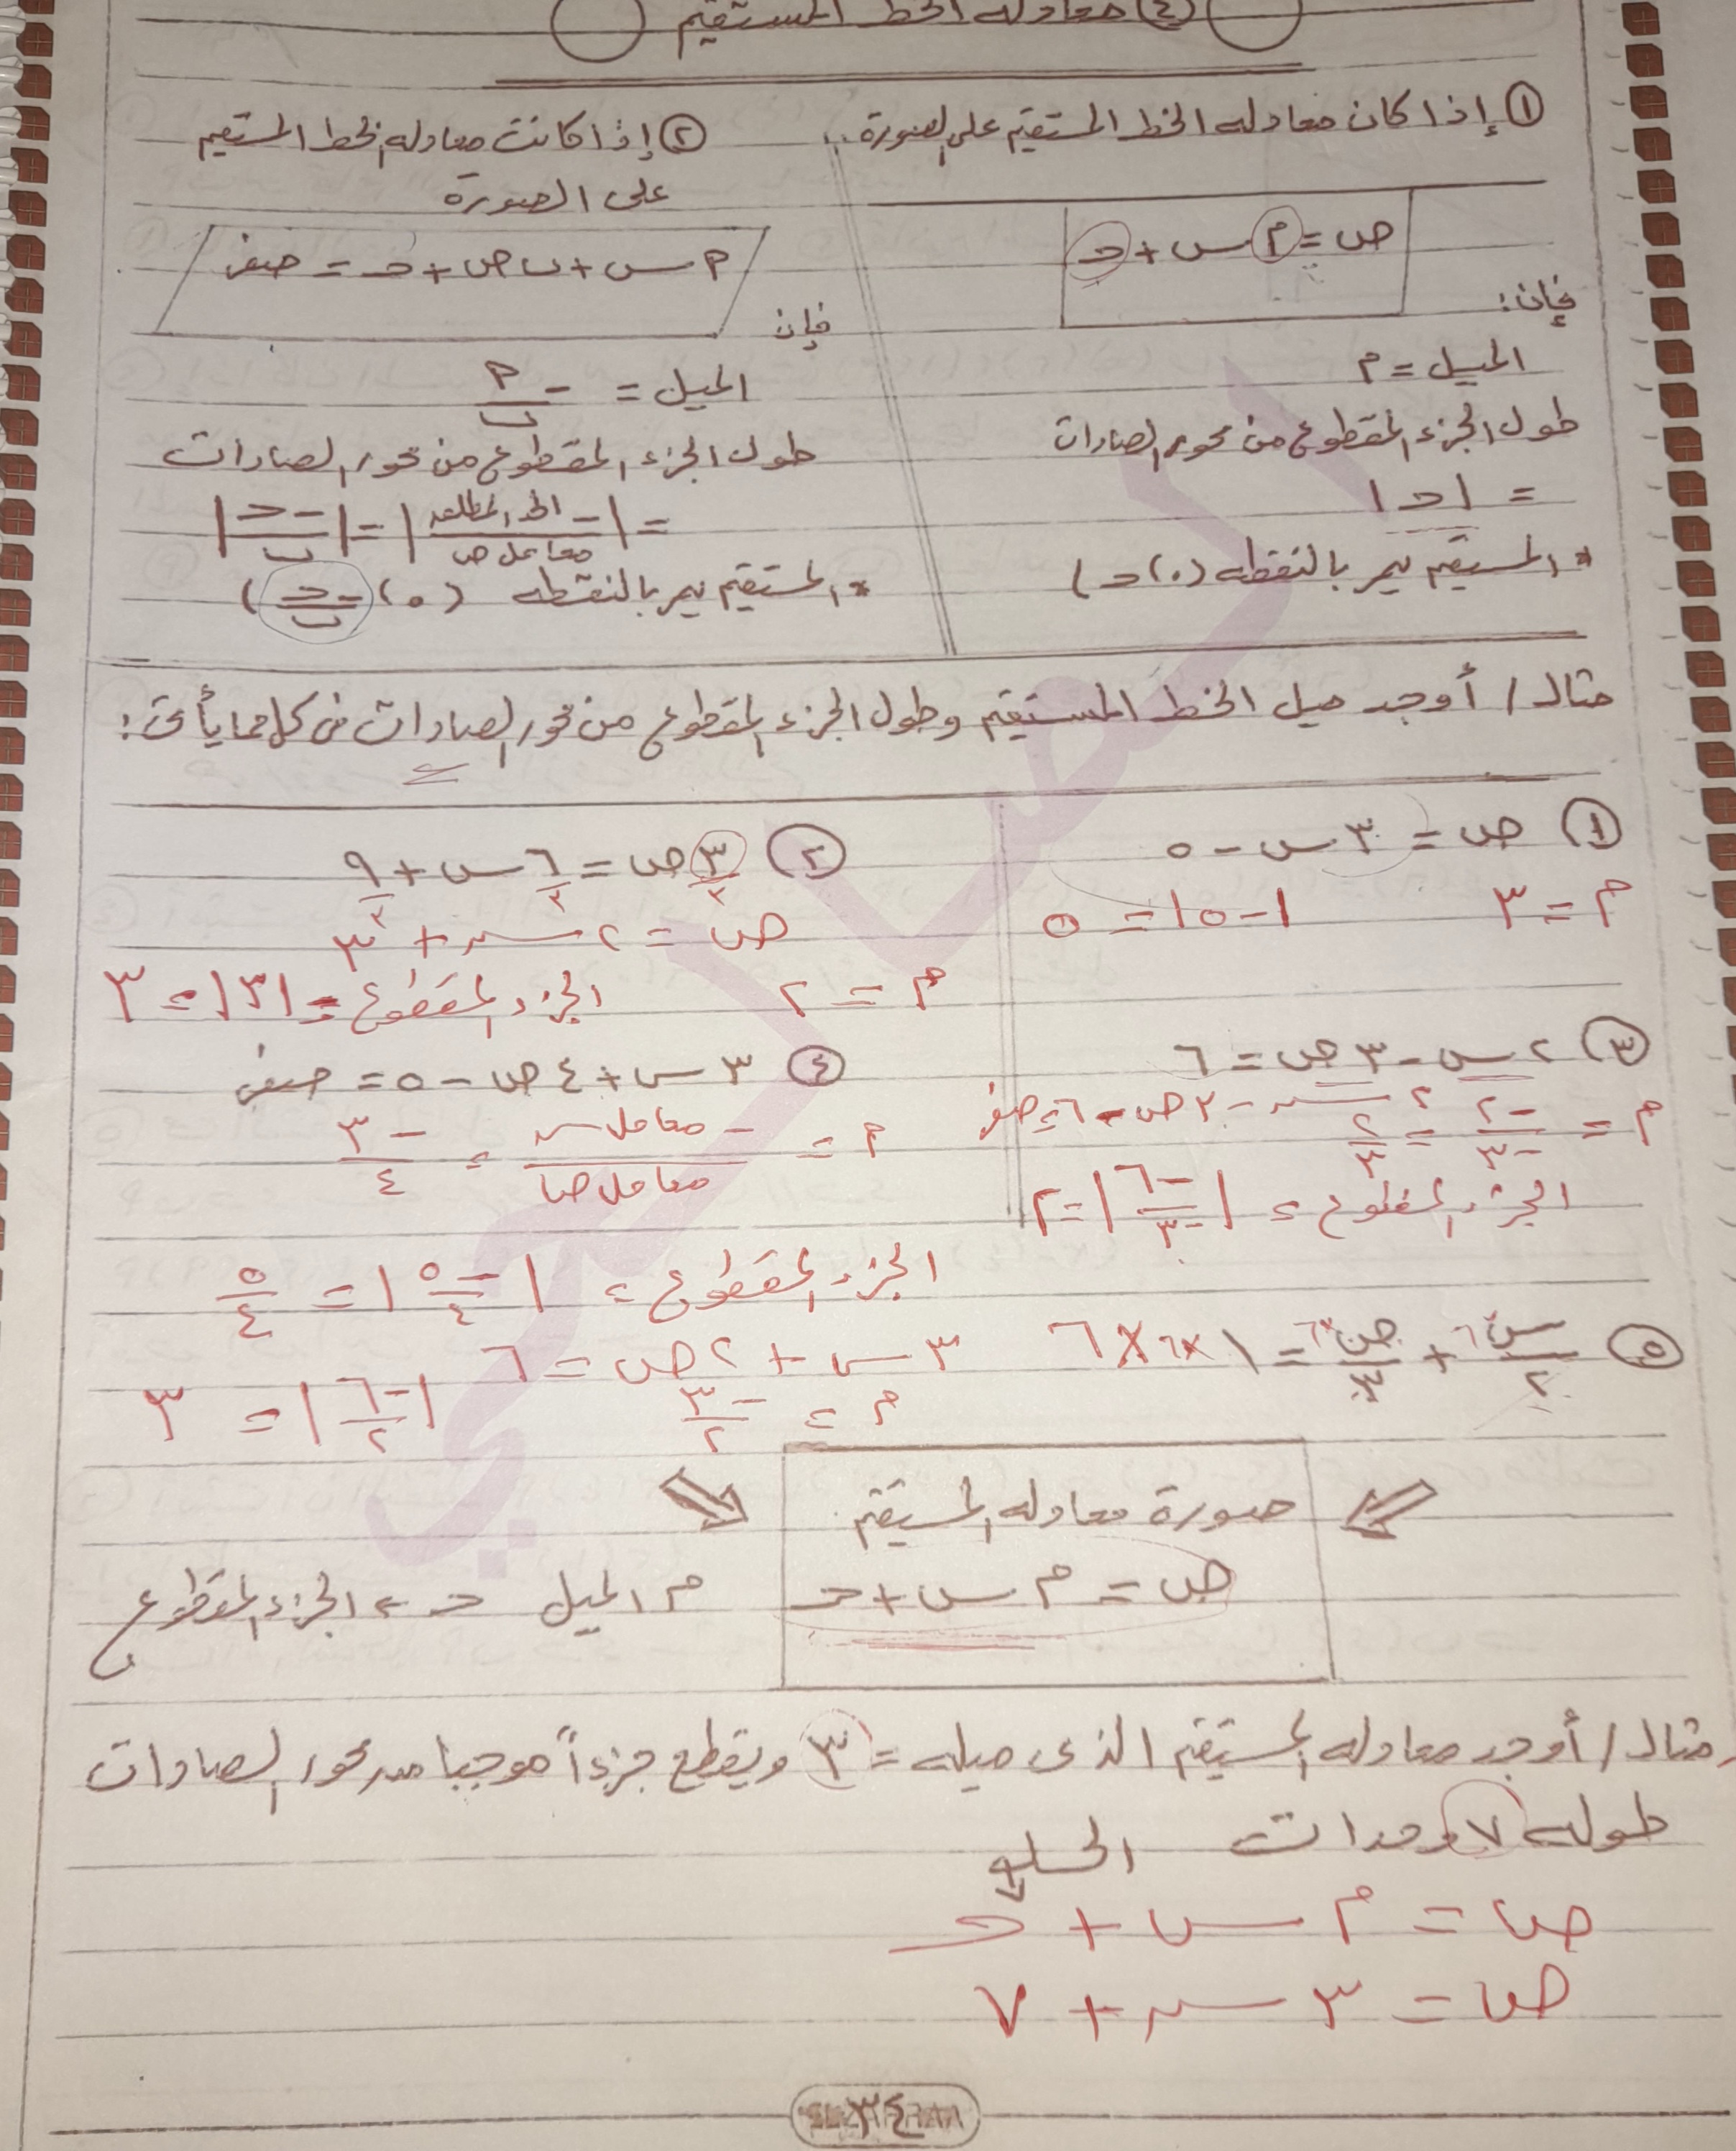 (٤) معادلة الخط المستقيم
① إذا كان معادلة الخط المستقيم على الصورة
ص = م س + حـ
فإن:
الميل = م
طول الجزء المقطوع من محور الصادات
= |حـ|
* المستقيم يمر بالنقطة (٠، حـ)
② إذا كانت معادلة الخط المستقيم
على الصورة
م س + ب ص + حـ = صفر
فإن
الميل = -م/ب
طول الجزء المقطوع من محور الصادات
= |-الحد المطلق/معامل ص| = |-حـ/ب|
* المستقيم يمر بالنقطة (٠، -حـ/ب)
مثال / أوجد ميل الخط المستقيم وطول الجزء المقطوع من محور الصادات في كل مما يأتي:
① ص = ٣س - ٥
م = ٣ |-٥| = ٥
② ٣ص/٣ = ٦/٣ س + ٩/٣
ص = ٢س + ٣
م = ٢ الجزء المقطوع = |٣| = ٣
③ ٢س - ٣ص = ٦
٢س - ٣ص - ٦ = صفر
م = -٢/-٣ = ٢/٣
الجزء المقطوع = |-٦/-٣| = ٢
④ ٣س + ٤ص - ٥ = صفر
م = -معامل س/معامل ص = -٣/٤
الجزء المقطوع = |-٥/٤| = ٥/٤
⑤ س/٢ ×٦ + ص/٣ ×٦ = ١ ×٦ ×٦
٣س + ٢ص = ٦
م = -٣/٢ |-٦/٢| = ٣
صورة معادلة المستقيم
ص = م س + حـ
م الميل حـ ← الجزء المقطوع
مثال / أوجد معادلة المستقيم الذى ميله = ٣ ويقطع جزءاً موجبا من محور الصادات
طوله ٧ وحدات الحل
ص = م س + حـ
ص = ٣س + ٧
٣٤